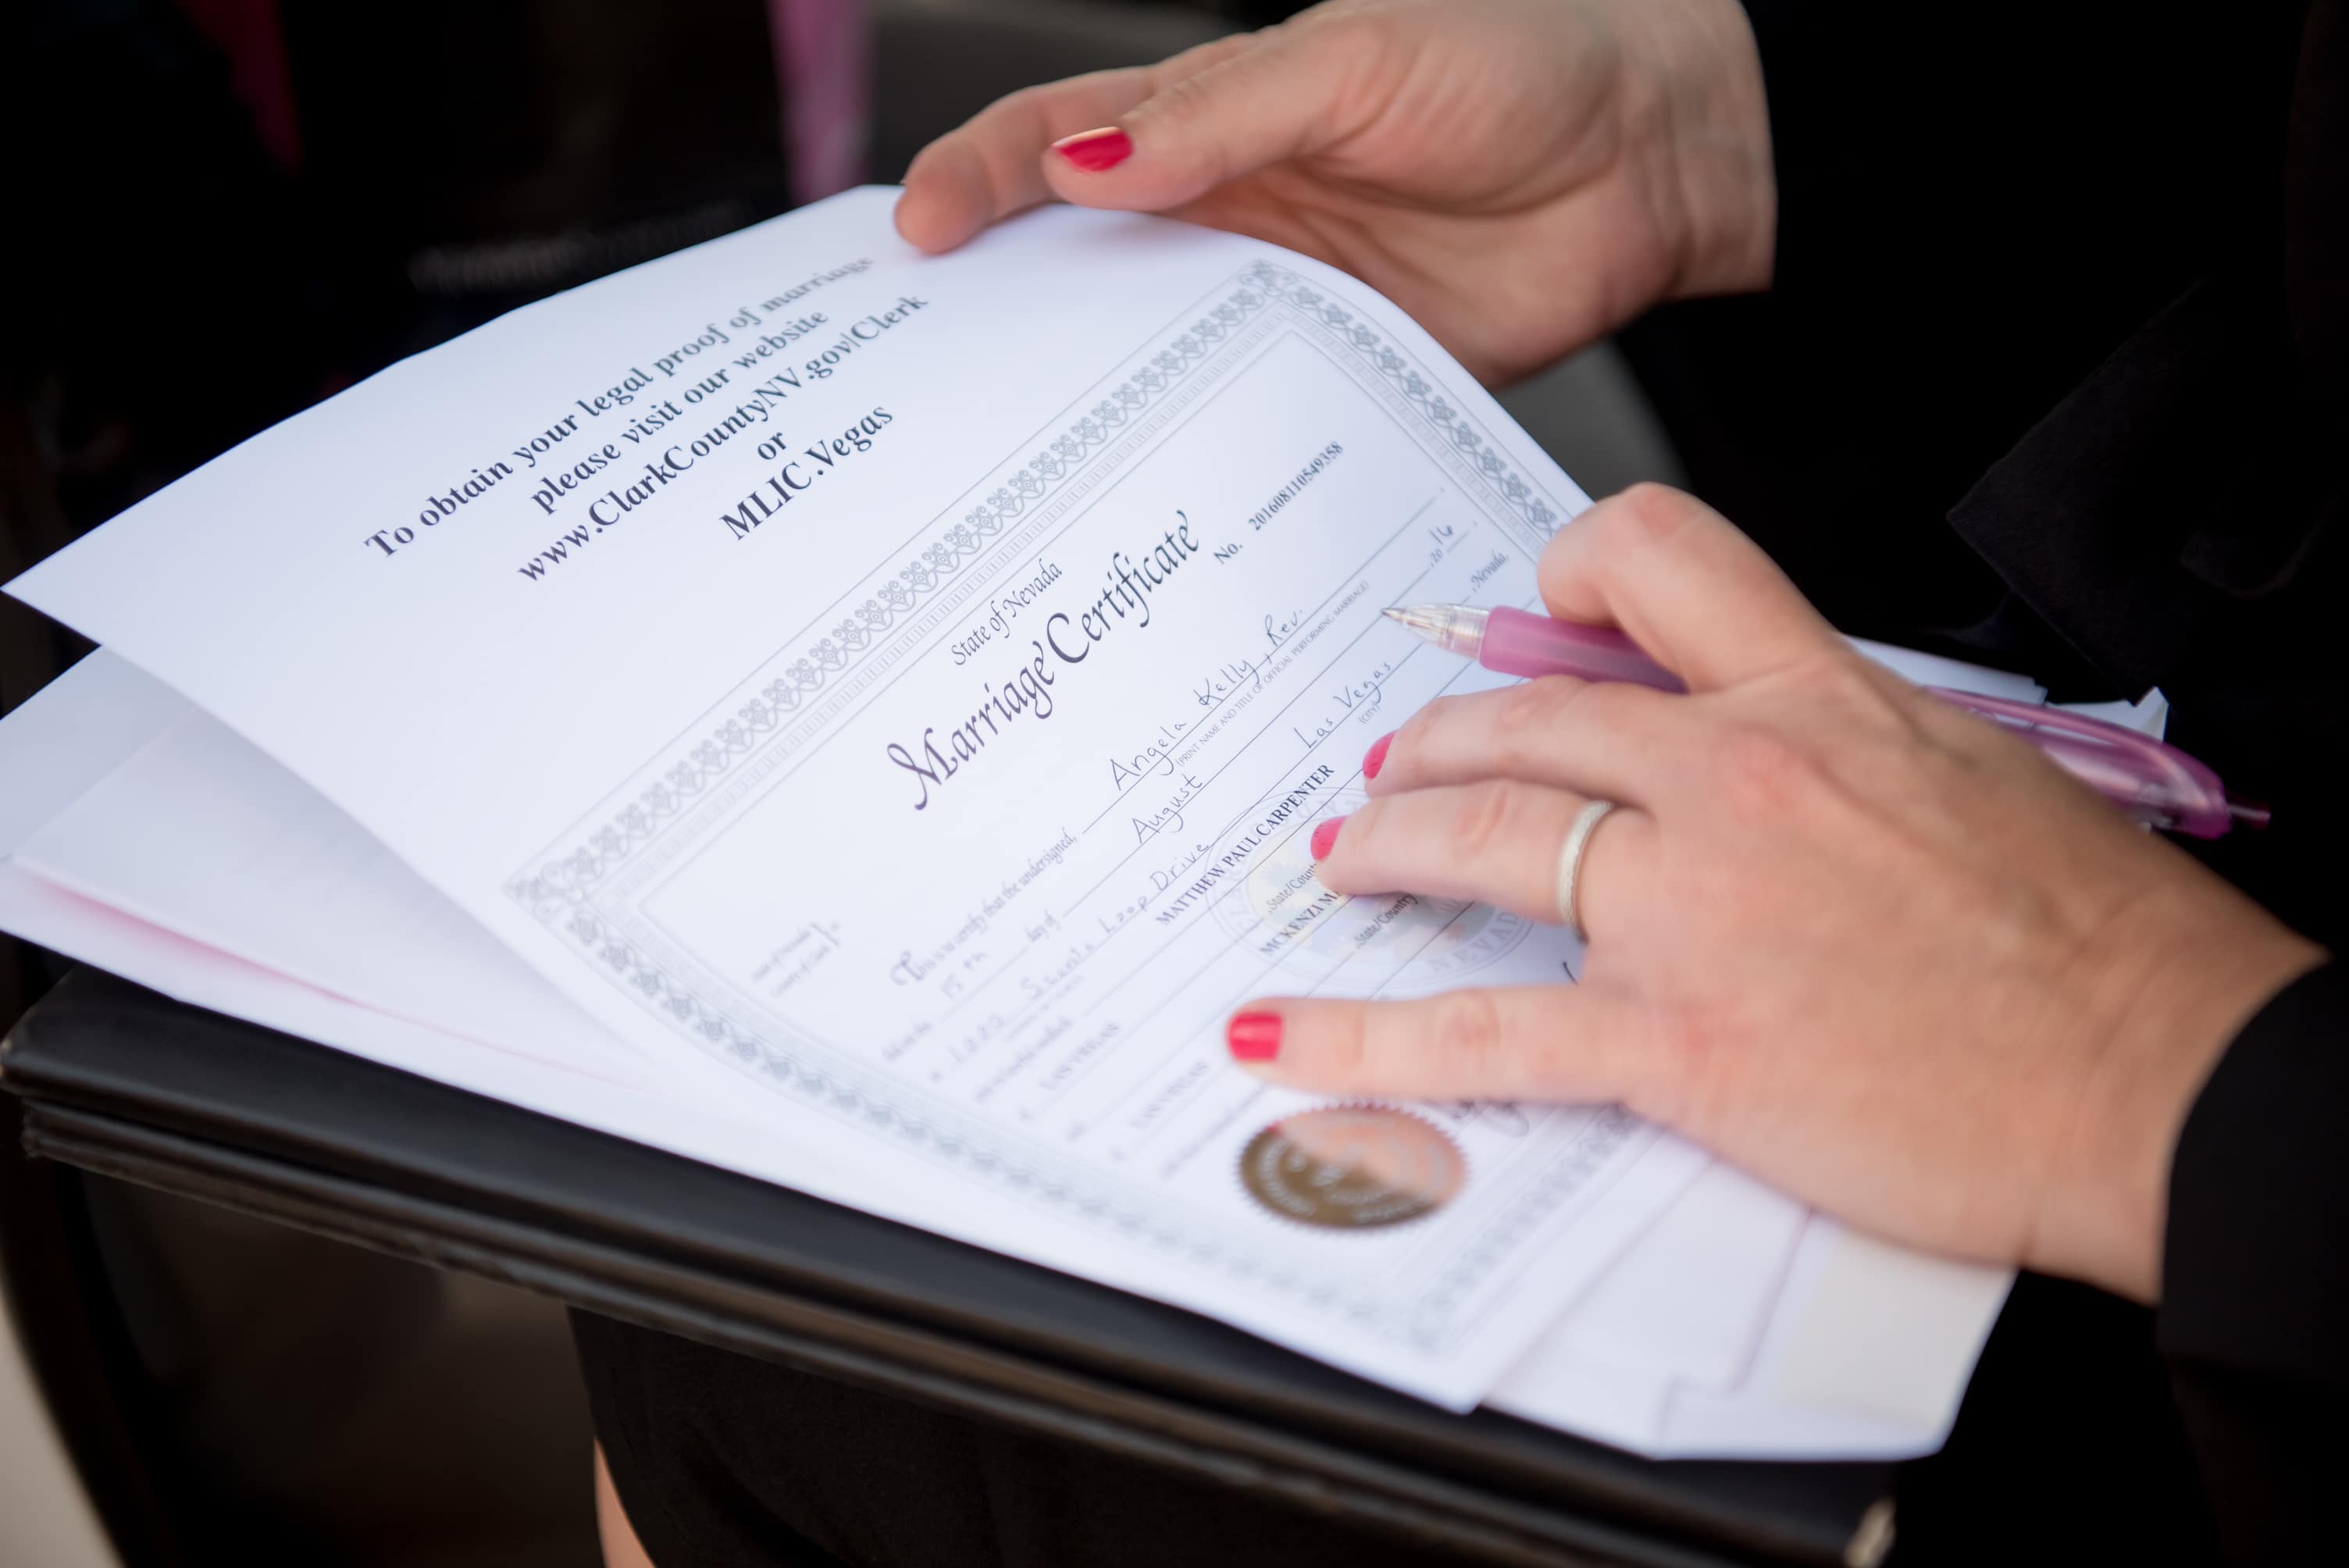 To obtain your legal proof of marriage
please visit our website
www.ClarkCountyNV.gov/Clerk
or
MLIC.Vegas
State of Nevada
Marriage Certificate
No. 201608110549358
This is to certify that the undersigned, Angela Kelly, Rev.
(PRINT NAME AND TITLE OF OFFICIAL PERFORMING MARRIAGE)
did on the 15th day of August , 20 16
Loop Drive Las Vegas , Nevada,
(CITY)
MATTHEW PAUL CARPENTER
LAS VEGAS State/Country
MCKENZI
LAS VEGAS State/Country
NEVADA